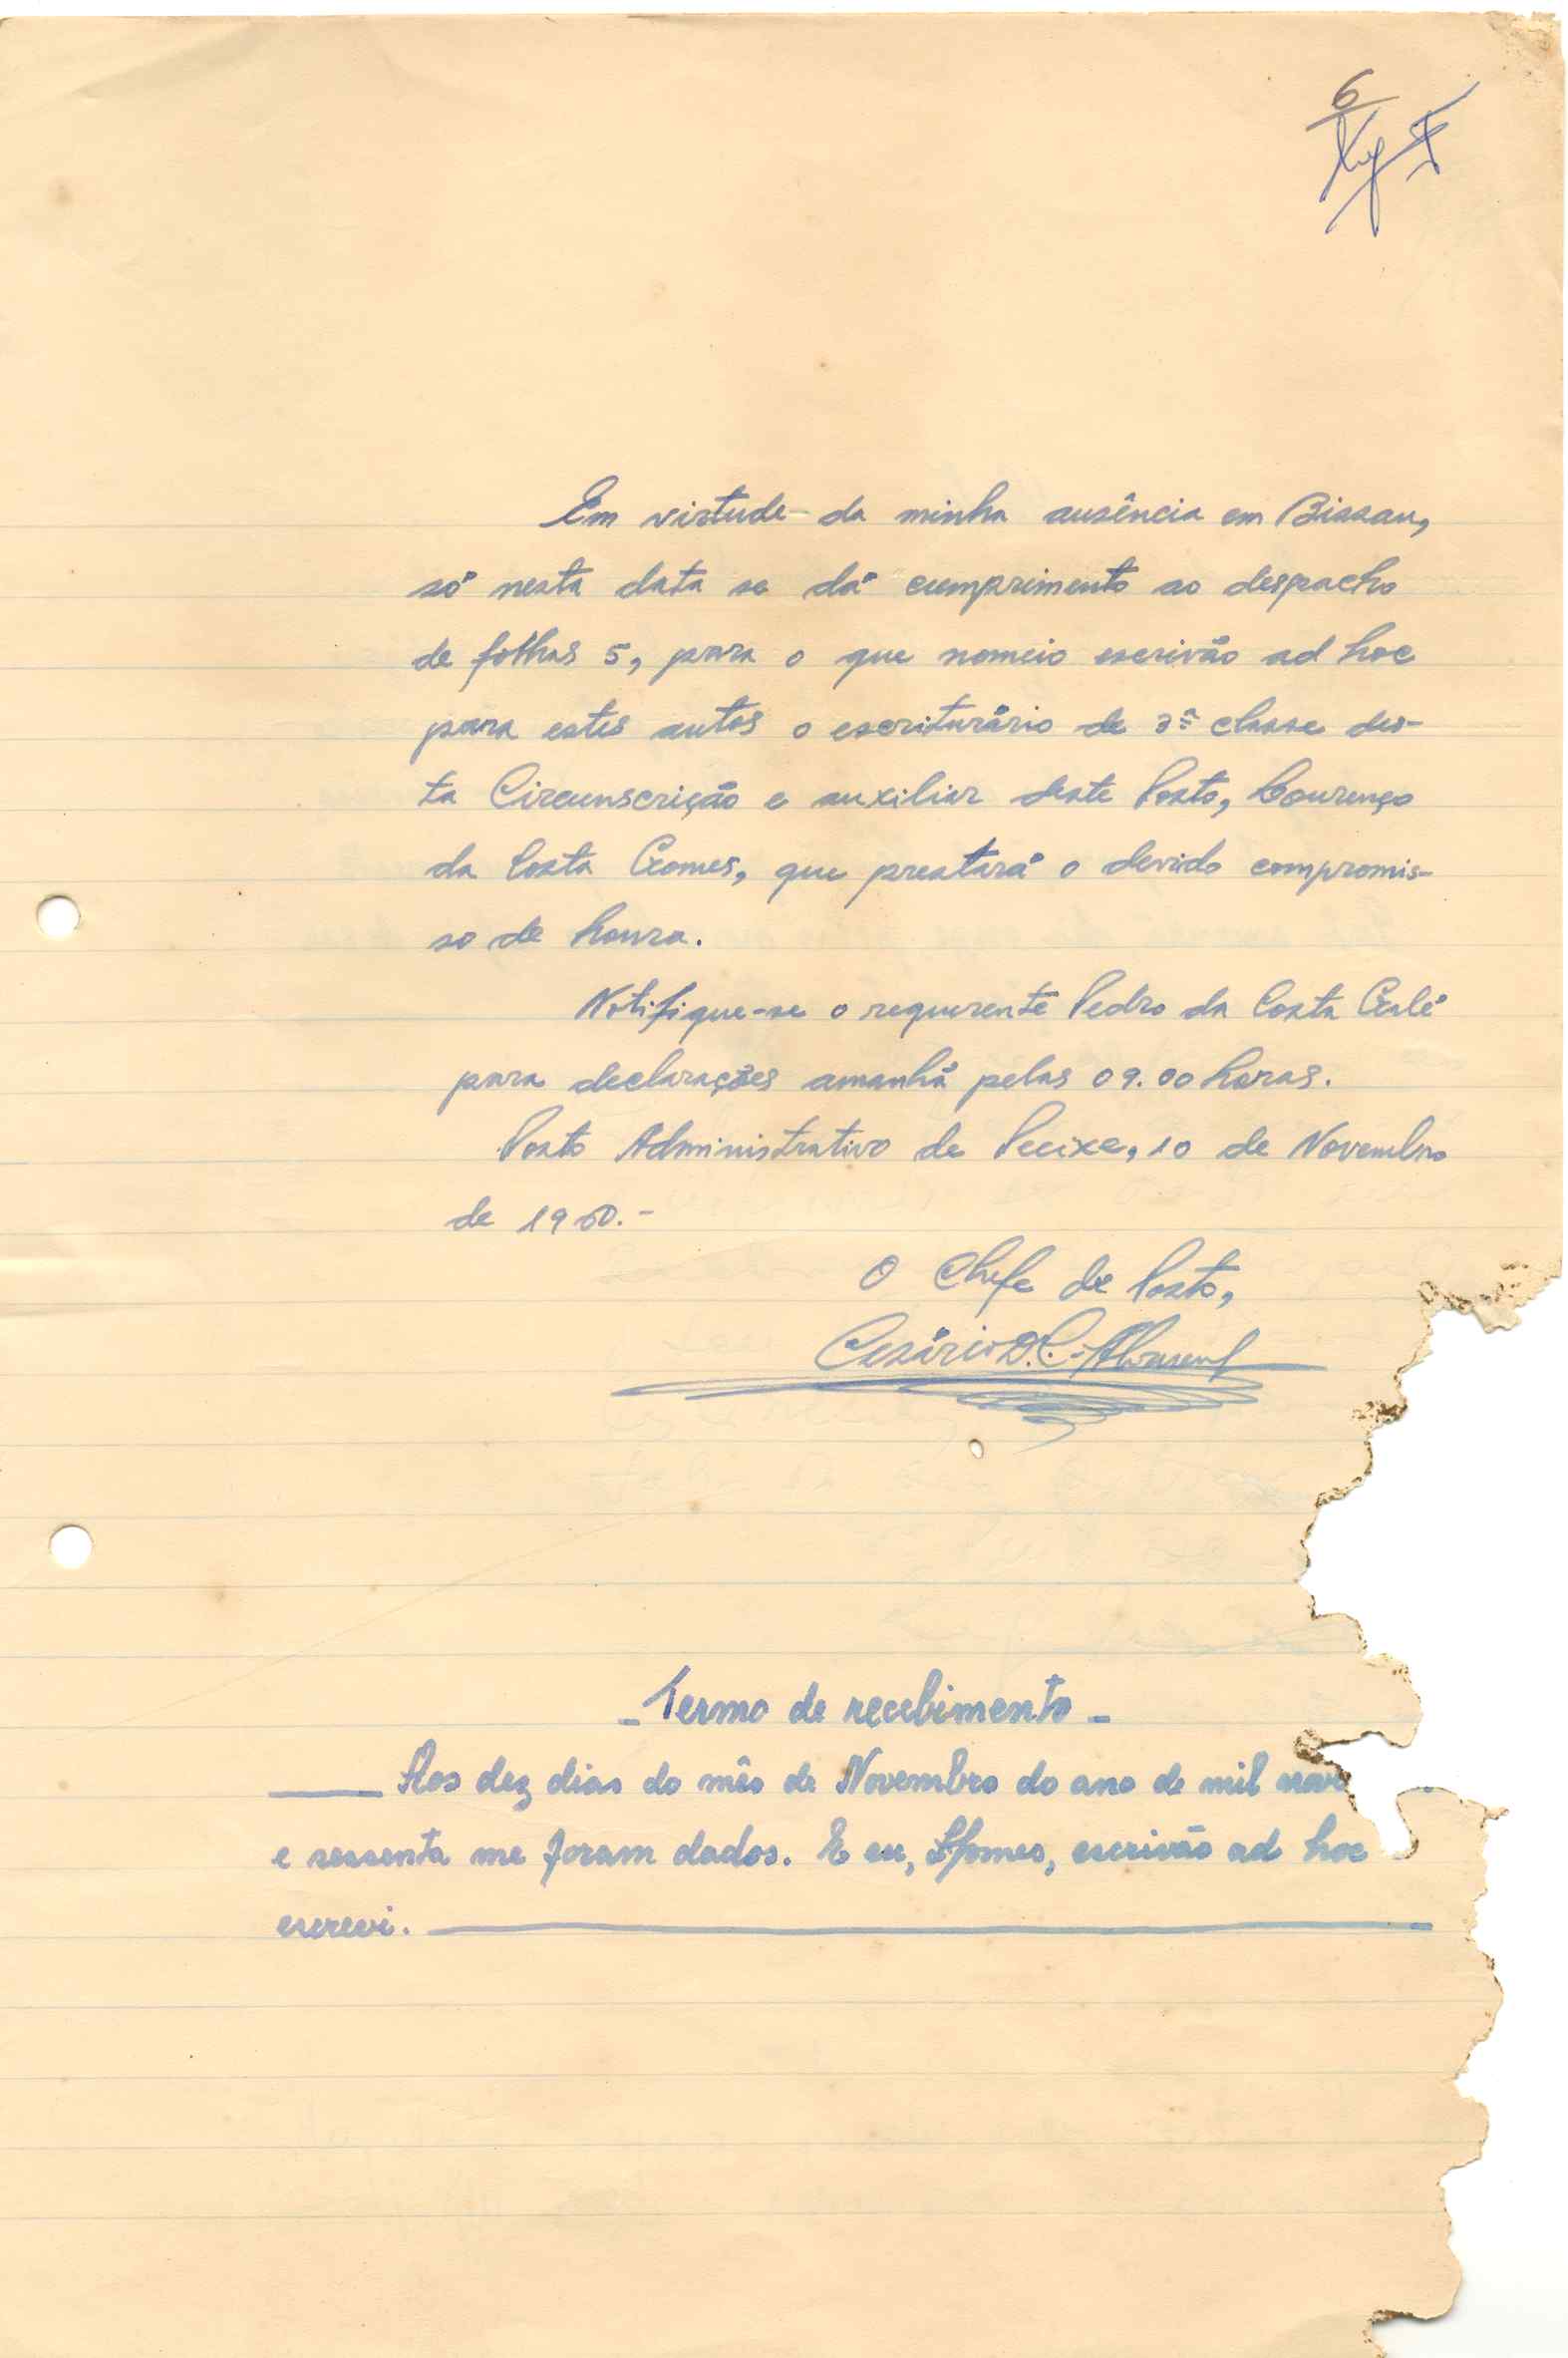 6
Em virtude da minha ausência em Bissau,
só nesta data se dá cumprimento ao despacho
de folhas 5, para o que nomeio escrivão ad hoc
para estes autos o escriturário de 3ª classe des-
ta Circunscrição e auxiliar deste Posto, Lourenço
da Costa Gomes, que prestará o devido compromis-
so de honra.
Notifique-se o requerente Pedro da Costa Galé
para declarações amanhã pelas 09.00 horas.
Posto Administrativo de Pecixe, 10 de Novembro
de 1960.-
O Chefe de Posto,
Cesário D. C.
- Termo de recebimento -
Aos dez dias do mês de Novembro do ano de mil nove
e sessenta me foram dados. E eu, LGomes, escrivão ad hoc
escrevi.